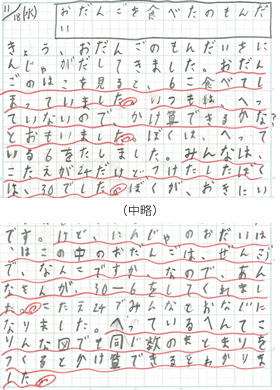 11/18(水)
おだんごを食べたのもんだい
きょう、おだんごのもんだいをに
んじゃがだしてきました。おだん
ごのはこを見ると、6こ食べてし
まっていました。いつもは、へっ
ていないので、かけ算できるかな?
とおもいました。ぼくは、へって
いる6をたしました。みんなは、
こたえが24だけとつけたしたぼく
は、30でした。ぼくが、おきにい
(中略)
です。けど、にんじゃのおだいは
、はこの中のおだんごは、ぜんぶ
で、なんこですか、なので、あん
なさんが、30-6をしてくれまし
た。こたえ24でみんなとおなじに
なりました。へっているへんてこ
りんな図でも同じ数のまとまりを
つくるとかけ算できるとわかりま
した。